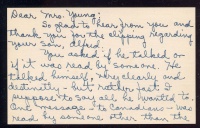 Dear Mrs. Young:
So glad to hear from you and
thank you for the clipping regarding
your son, Alfred.
You asked if he talked or
if it was read by someone. He
talked himself, very clearly and
distinctly - but rather fast I
suppose to say all he wanted to.
One message - to Canada - was
read by someone other than the